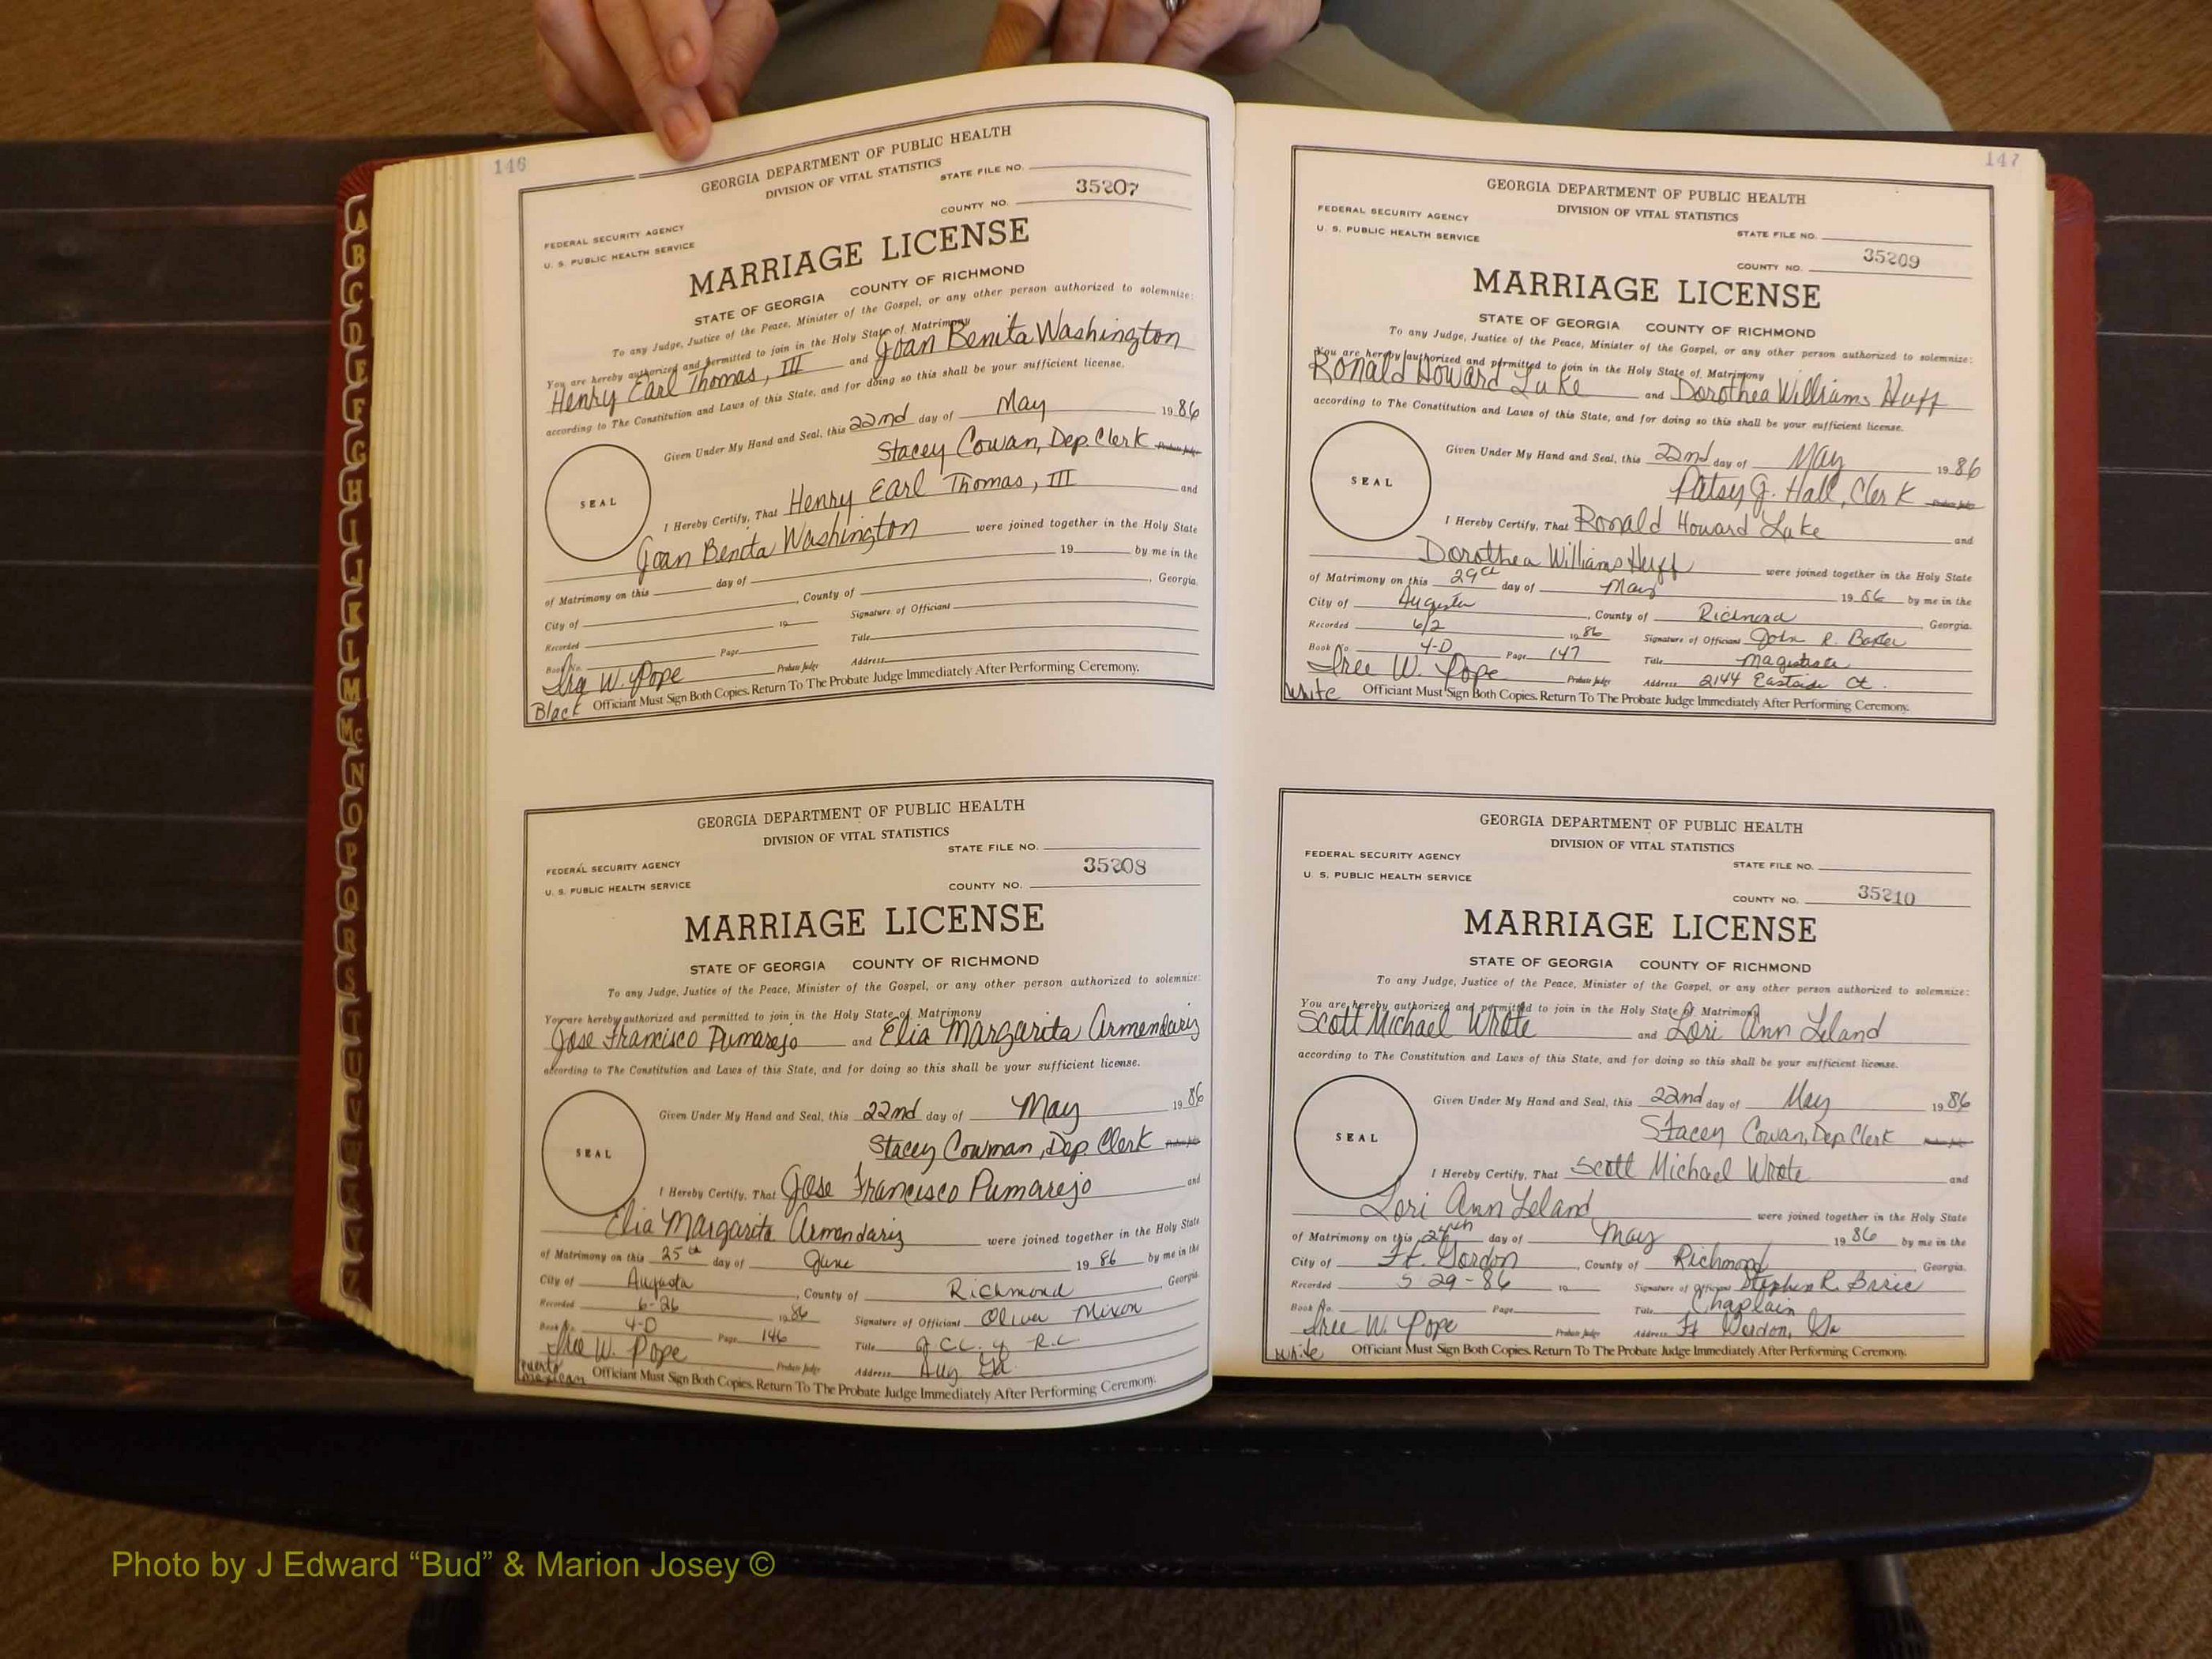 146
GEORGIA DEPARTMENT OF PUBLIC HEALTH
DIVISION OF VITAL STATISTICS
STATE FILE NO.
35207
COUNTY NO.
FEDERAL SECURITY AGENCY
U. S. PUBLIC HEALTH SERVICE
MARRIAGE LICENSE
STATE OF GEORGIA COUNTY OF RICHMOND
To any Judge, Justice of the Peace, Minister of the Gospel, or any other person authorized to solemnize:
You are hereby authorized and permitted to join in the Holy State of Matrimony
Henry Earl Thomas, III and Joan Benita Washington
according to The Constitution and Laws of this State, and for doing so this shall be your sufficient license.
Given Under My Hand and Seal, this 22nd day of May 1986
Stacey Cowan, Dep. Clerk Probate Judge
SEAL
I Hereby Certify, That Henry Earl Thomas, III and
Joan Benita Washington were joined together in the Holy State
of Matrimony on this day of 19 by me in the
City of , County of , Georgia.
Recorded 19 Signature of Officiant
Book No. Page Title
W. Pope Probate Judge Address
Black Officiant Must Sign Both Copies. Return To The Probate Judge Immediately After Performing Ceremony.
GEORGIA DEPARTMENT OF PUBLIC HEALTH
DIVISION OF VITAL STATISTICS
STATE FILE NO.
35208
COUNTY NO.
FEDERAL SECURITY AGENCY
U. S. PUBLIC HEALTH SERVICE
MARRIAGE LICENSE
STATE OF GEORGIA COUNTY OF RICHMOND
To any Judge, Justice of the Peace, Minister of the Gospel, or any other person authorized to solemnize:
You are hereby authorized and permitted to join in the Holy State of Matrimony
Jose Francisco Pumarejo and Elia Margarita Armendariz
according to The Constitution and Laws of this State, and for doing so this shall be your sufficient license.
Given Under My Hand and Seal, this 22nd day of May 1986
Stacey Cowman, Dep. Clerk Probate Judge
SEAL
I Hereby Certify, That Jose Francisco Pumarejo and
Elia Margarita Armendariz were joined together in the Holy State
of Matrimony on this 25th day of June 1986 by me in the
City of Augusta, County of Richmond Georgia.
Recorded 6-26 1986 Signature of Officiant Oliver Mixon
Book No. 4-D Page 146 Title R.C.
W. Pope Probate Judge Address Aug Ga
Puerto Mexican Officiant Must Sign Both Copies. Return To The Probate Judge Immediately After Performing Ceremony.
147
GEORGIA DEPARTMENT OF PUBLIC HEALTH
DIVISION OF VITAL STATISTICS
STATE FILE NO.
35209
COUNTY NO.
FEDERAL SECURITY AGENCY
U. S. PUBLIC HEALTH SERVICE
MARRIAGE LICENSE
STATE OF GEORGIA COUNTY OF RICHMOND
To any Judge, Justice of the Peace, Minister of the Gospel, or any other person authorized to solemnize:
You are hereby authorized and permitted to join in the Holy State of Matrimony
Ronald Howard Luke and Dorothea Williams Huff
according to The Constitution and Laws of this State, and for doing so this shall be your sufficient license.
Given Under My Hand and Seal, this 22nd day of May 1986
Patsy J. Hall, Clerk Probate Judge
SEAL
I Hereby Certify, That Ronald Howard Luke and
Dorothea Williams Huff were joined together in the Holy State
of Matrimony on this 29th day of May 1986 by me in the
City of Augusta, County of Richmond Georgia.
Recorded 6/2 1986 Signature of Officiant John R. Baxter
Book No. 4-D Page 147 Title Magistrate
W. Pope Probate Judge Address 2144 Eastside Ct.
White Officiant Must Sign Both Copies. Return To The Probate Judge Immediately After Performing Ceremony.
GEORGIA DEPARTMENT OF PUBLIC HEALTH
DIVISION OF VITAL STATISTICS
STATE FILE NO.
35210
COUNTY NO.
FEDERAL SECURITY AGENCY
U. S. PUBLIC HEALTH SERVICE
MARRIAGE LICENSE
STATE OF GEORGIA COUNTY OF RICHMOND
To any Judge, Justice of the Peace, Minister of the Gospel, or any other person authorized to solemnize:
You are hereby authorized and permitted to join in the Holy State of Matrimony
Scott Michael Wrote and Lori Ann Leland
according to The Constitution and Laws of this State, and for doing so this shall be your sufficient license.
Given Under My Hand and Seal, this 22nd day of May 1986
Stacey Cowan, Dep. Clerk Probate Judge
SEAL
I Hereby Certify, That Scott Michael Wrote and
Lori Ann Leland were joined together in the Holy State
of Matrimony on this day of May 1986 by me in the
City of Ft. Gordon, County of Richmond, Georgia.
Recorded 5-29-86 19 Signature of Officiant Stephen R.
Book No. Page Title Chaplain
W. Pope Probate Judge Address Ft Gordon, Ga
White Officiant Must Sign Both Copies. Return To The Probate Judge Immediately After Performing Ceremony.
A B C D E F G H I J K L M Mc N O P Q R S T U V W X Y Z
Photo by J Edward “Bud” & Marion Josey ©